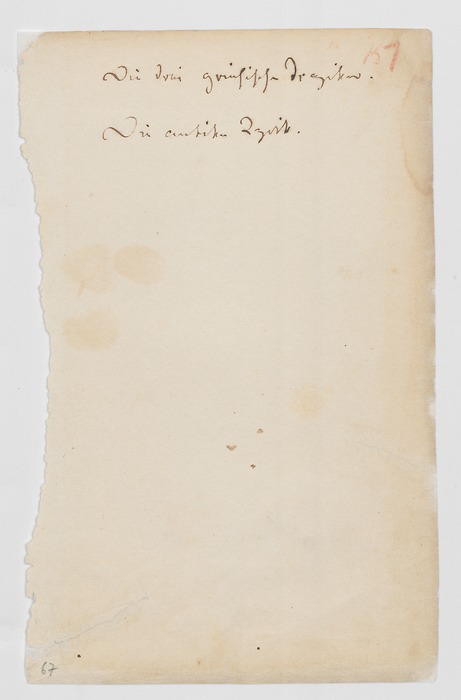 57
Die drei griechische Tragiker.
Die antike Lyrik.
67